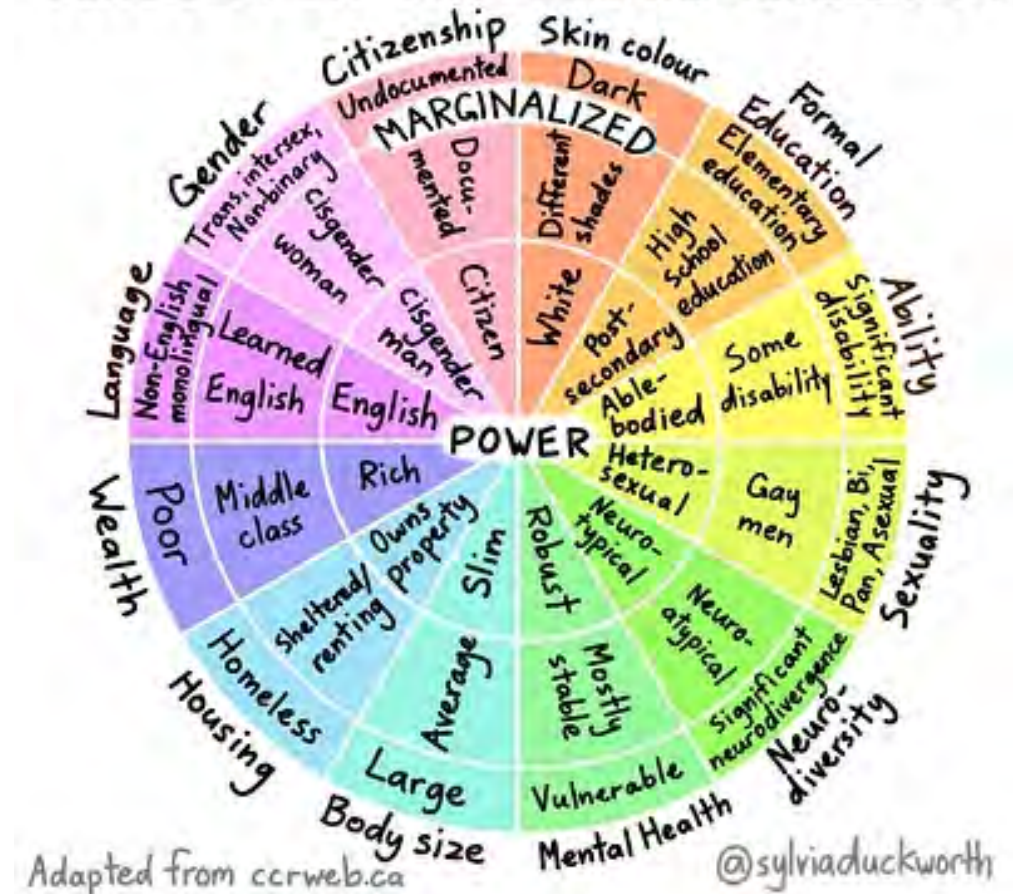 Citizenship
Undocumented
Docu-
mented
Citizen
Skin colour
Dark
Different
shades
White
Formal
Education
Elementary
education
High
School
education
Post-
secondary
Ability
Significant
disability
Some
disability
Able-
bodied
Sexuality
Lesbian, Bi,
Pan, Asexual
Gay
men
Hetero-
sexual
Neuro-
diversity
Significant
neurodivergence
Neuro-
atypical
Neuro-
typical
Mental Health
Vulnerable
Mostly
stable
Robust
Body size
Large
Average
Slim
Housing
Homeless
Sheltered/
renting
Owns
property
Wealth
Poor
Middle
class
Rich
Language
Non-English
monolingual
Learned
English
English
Gender
Trans, intersex,
Non-binary
cisgender
woman
cisgender
man
MARGINALIZED
POWER
Adapted from ccrweb.ca
@sylviaduckworth